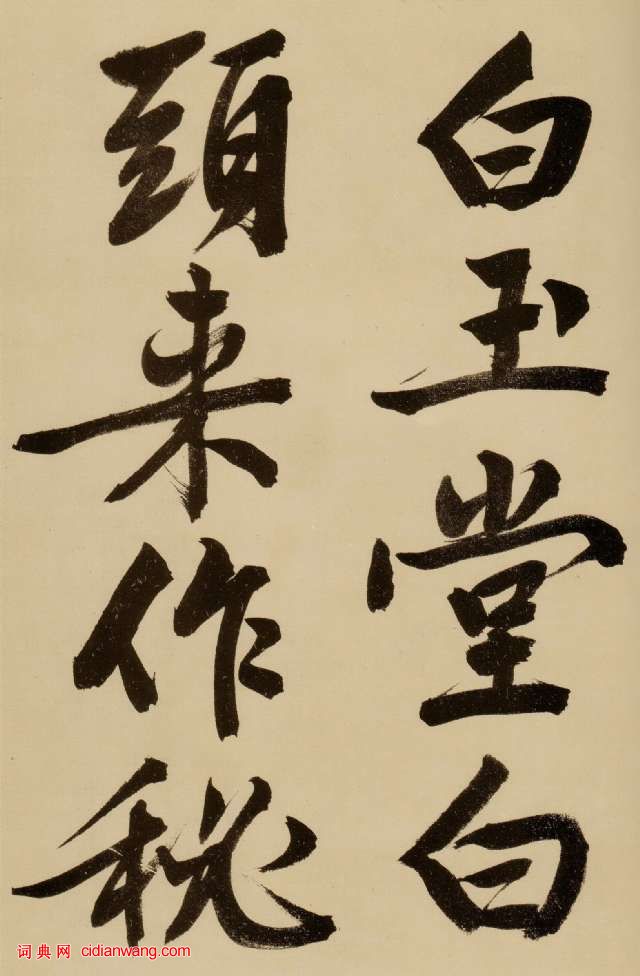 白玉堂白
頭来作秘
词典网 cidianwang.com